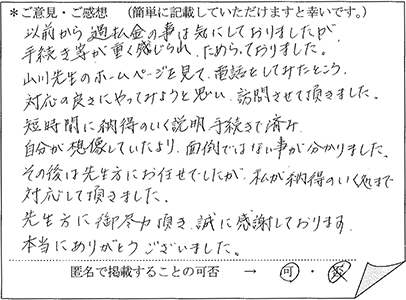 ＊ご意見・ご感想　（簡単に記載していただけますと幸いです。）
以前から過払金の事は気にしておりましたが、
手続き等が重く感じられ、ためらっておりました。
山川先生のホームページを見て、電話をしてみたところ、
対応の良さにやってみようと思い、訪問させて頂きました。
短時間に納得のいく説明、手続きで済み、
自分が想像していたより、面倒ではない事が分かりました。
その後は先生方にお任せでしたが、私が納得のいく処まで
対応して頂きました。
先生方に御尽力頂き、誠に感謝しております。
本当にありがとうございました。
匿名で掲載することの可否　→　可・否